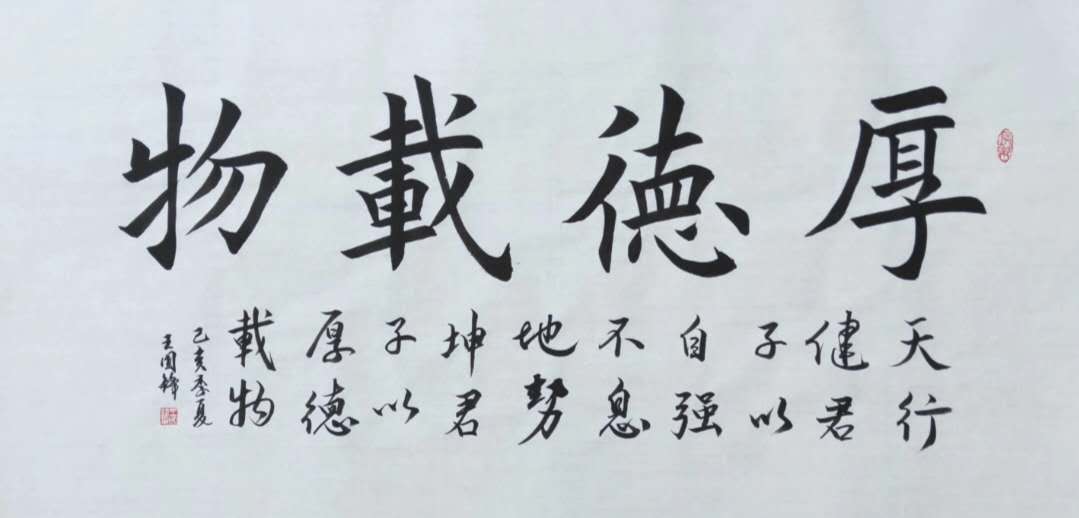 厚德載物
天行
健君
子以
自强
不息
地势
坤君
子以
厚德
載物
己亥季夏
王国锋